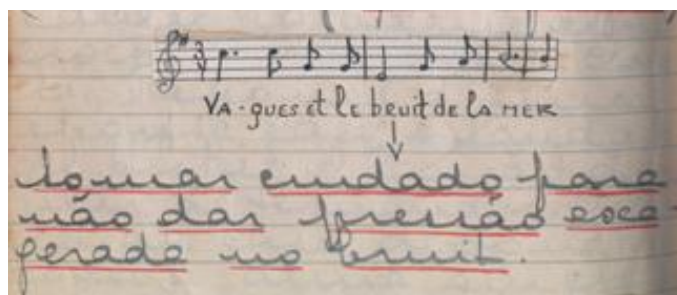 VA-gues et le beuit de la MER
tomar cuidado para
não dar pressão exa-
gerada no bruit.